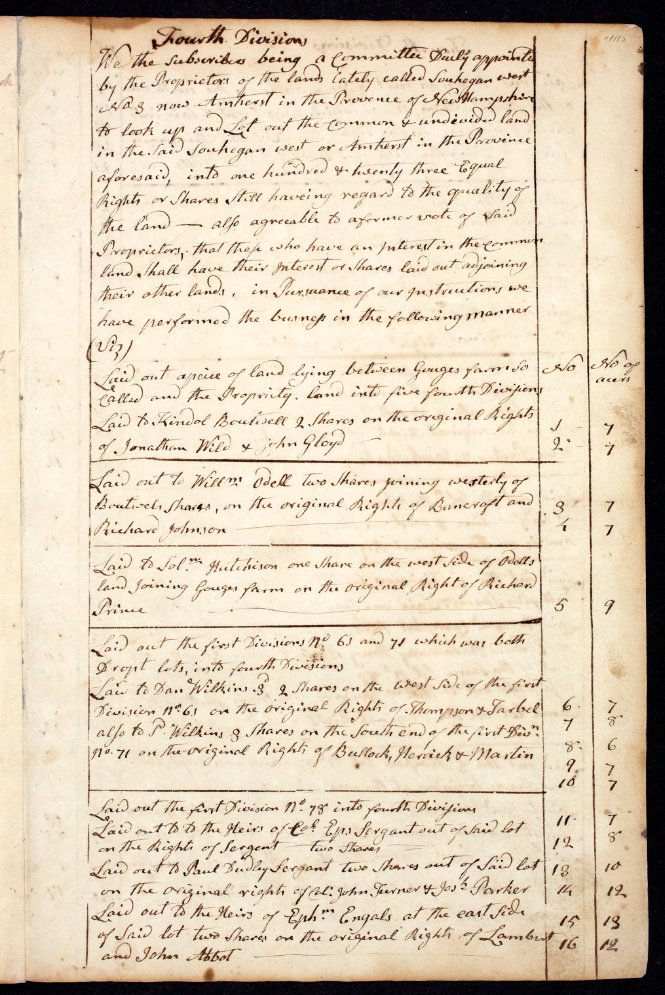 Fourth Divisions
We the Subscribers being a Committee Duly appointed
by the Proprietors of the lands Lately called Souhegan west
No 3 now Amherst in the Provence of New Hampshire
to look up and Lot out the Common & undevided land
in the Said Souhegan west or Amherst in the Province
aforesaid, into one hundred & twenty three Equal
Rights or Shares Still haveing regard to the quality of
the land — also agreeable to a former vote of Said
Proprietors, that those who have an Interest in the common
land Shall have their Interest or Shares laid out adjoining
their other lands, in Pursuance of our Instructions we
have performed the business in the following manner
(Viz)
Laid out a peice of land lying between Gouges farm So No No of
Called and the Propriety land into five fourth Divisions acers
Laid to Kindol Boutwell 2 Shares on the oreginal Rights 1 7
of Jonathan Wild & John Gloyd — 2 7
Laid out to Willm Odell two Shares Joining westerly of
Boutwels Shares, on the original Rights of Bancroft and 3 7
Richard Johnson 4 7
Laid to Solmn Hutchison one Share on the west Side of Odells
land Joining Gouges farm on the original Right of Richard
Prince 5 9
Laid out the first Divisions No 61 and 71 which was both
Dropt lots, into fourth Divisions
Laid to Danl Wilkins 3d 2 Shares on the west Side of the first
Division No 61 on the original Rights of Thompson & Tarbel 6 7
also to Sd Wilkins 3 Shares on the South end of the first Divn 7 8
No 71 on the original Rights of Bullock, Herrick & Martin 8 6
9 7
10 7
Laid out the first Division No 78 into fourth Divisions 11 7
Laid out to to the Heirs of Col Eps Sergant out of Said lot
on the Rights of Sergent two Shares 12 8
Laid out to Paul Dudly Sergant two Shares out of Said lot 13 10
on the original rights of Col John Turner & Josh Parker 14 12
Laid out to the Heirs of Ephm Engals at the east Side
of Said lot two Shares on the original Rights of Lambert 15 13
and John Abbot 16 12